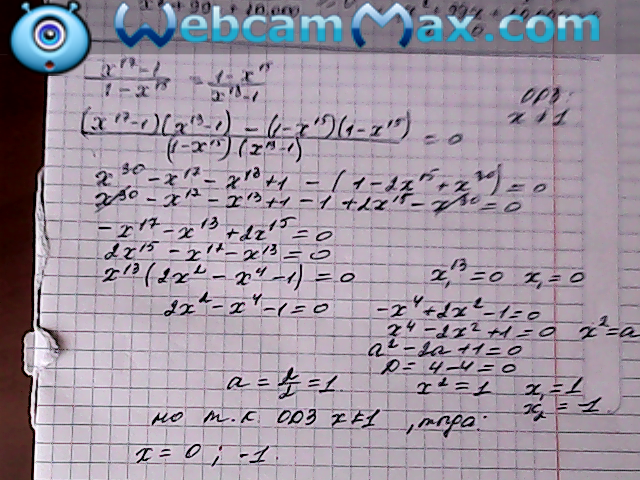 WebcamMax.com
x¹⁷-1 / 1-x¹⁵ = 1-x¹⁵ / x¹³-1
ОДЗ:
x ≠ 1
(x¹⁷-1)(x¹³-1) - (1-x¹⁵)(1-x¹⁵) / (1-x¹⁵)(x¹³-1) = 0
x³⁰ - x¹⁷ - x¹³ + 1 - (1 - 2x¹⁵ + x³⁰) = 0
x³⁰ - x¹⁷ - x¹³ + 1 - 1 + 2x¹⁵ - x³⁰ = 0
- x¹⁷ - x¹³ + 2x¹⁵ = 0
2x¹⁵ - x¹⁷ - x¹³ = 0
x¹³(2x² - x⁴ - 1) = 0 x₁¹³ = 0 x₁ = 0
2x² - x⁴ - 1 = 0 -x⁴ + 2x² - 1 = 0
x⁴ - 2x² + 1 = 0 x² = a
a² - 2a + 1 = 0
D = 4 - 4 = 0
a = 2/2 = 1. x² = 1 x₁ = 1
x₂ = -1
но т.к. ОДЗ x ≠ 1, тогда:
x = 0 ; -1.